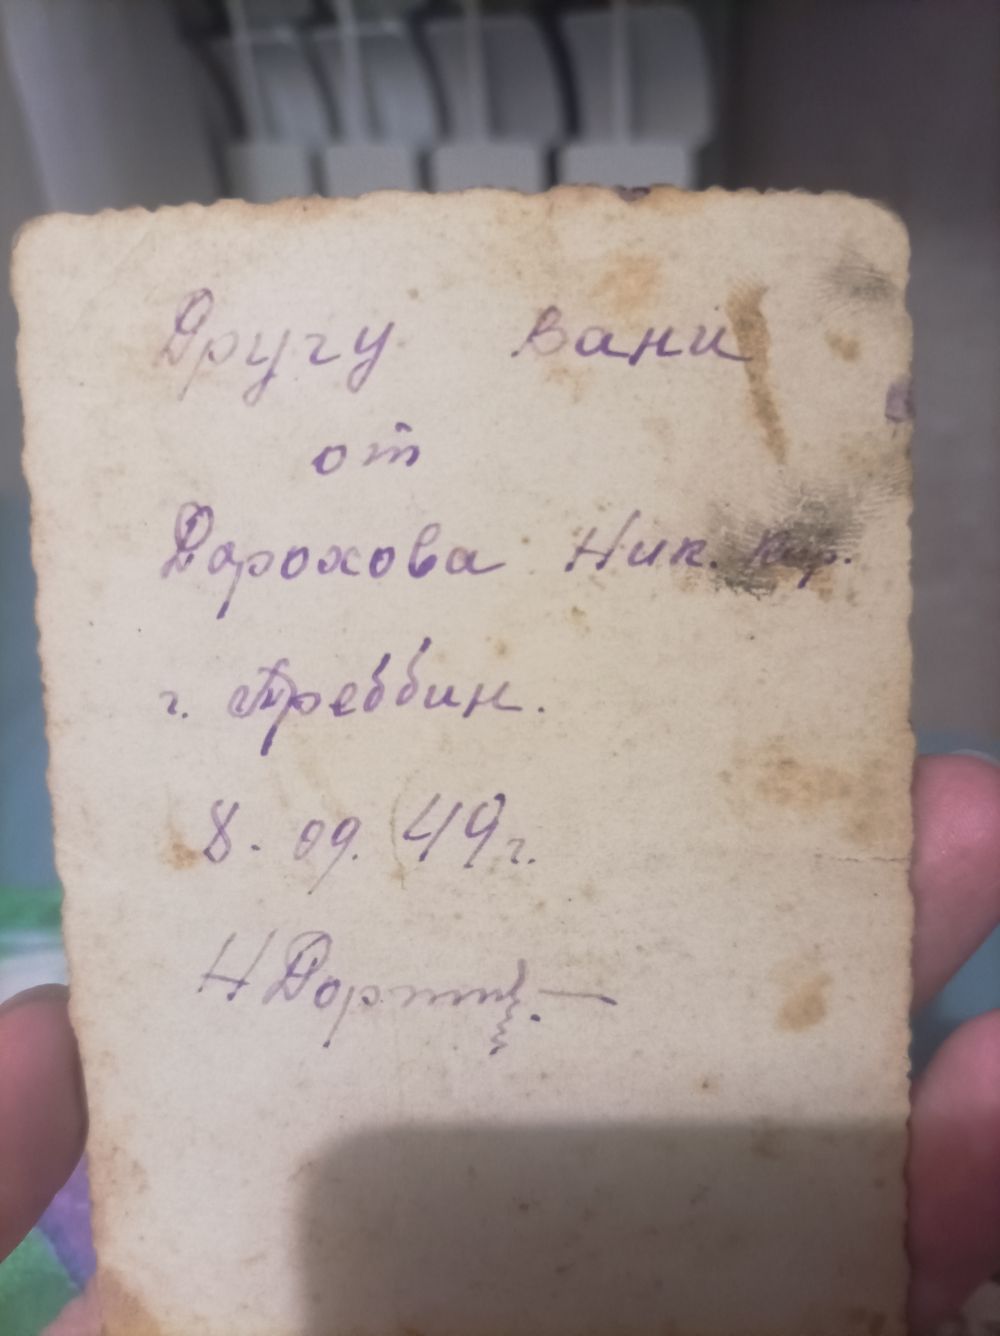 Другу Вани
от
Дорохова Ник.
г. Треббин.
8. 09. 49 г.